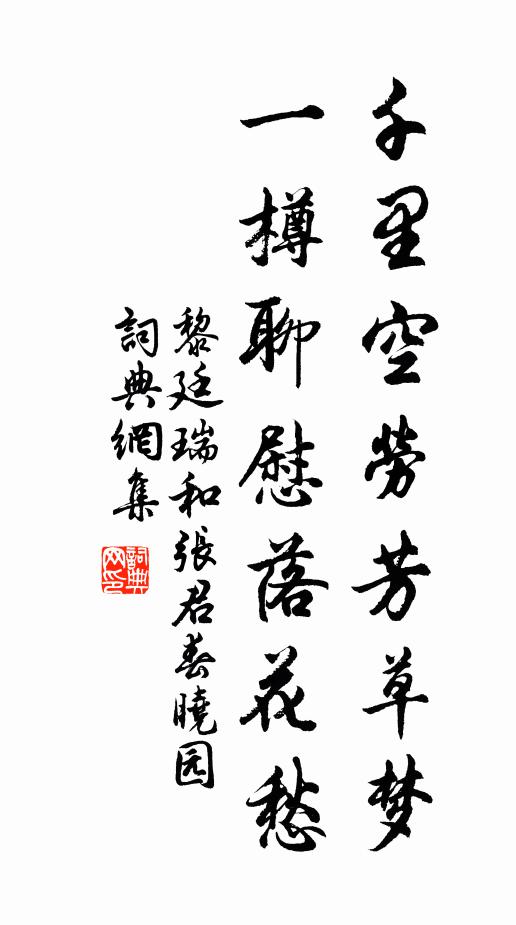 千里空勞芳草梦
一樽聊慰落花愁
黎廷瑞和張君春曉园
詞典網集
詞典网印